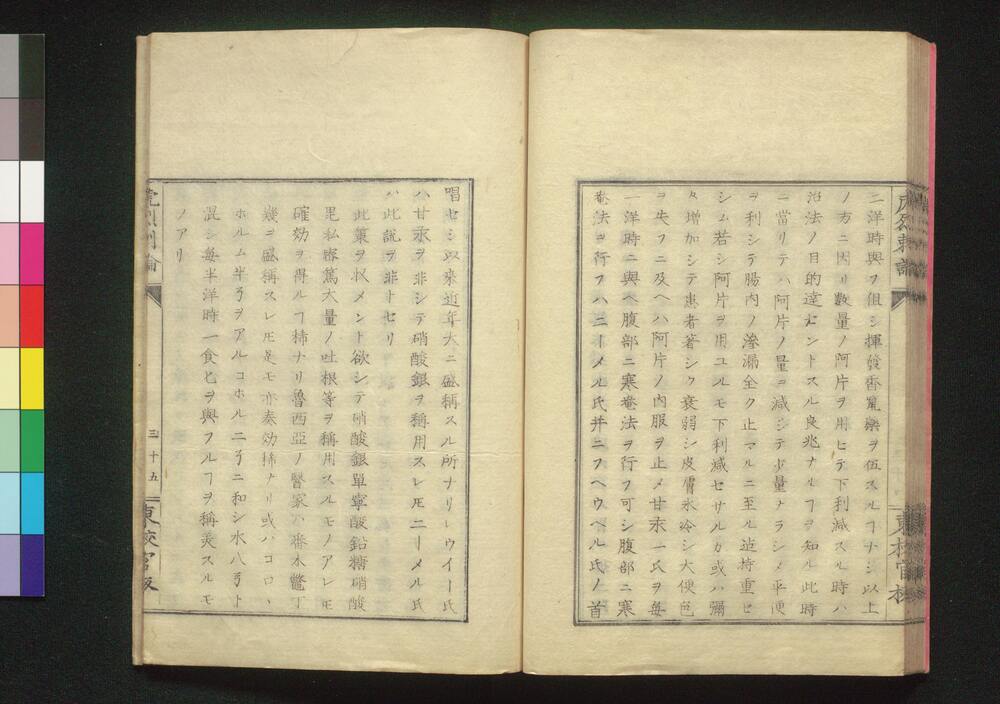 二洋時與フ但シ揮發香竄藥ヲ伍スルヿナシ以上
ノ方ニ因リ數量ノ阿片ヲ用ヒテ下利減スル時ハ
治法ノ目的達セントスル良兆ナルヿヲ知ル此時
ニ當リテハ阿片ノ量ヲ減シテ少量ナラシメ平便
ヲ利シテ腸内ノ滲漏全ク止マルニ至ル迠持重ヒ
シム若シ阿片ヲ用ユルモ下利減セサルカ或ハ彌
々增加シテ患者著シク衰弱シ皮膚氷冷シ大便色
ヲ失フニ及ヘハ阿片ノ内服ヲ止メ甘汞一氏ヲ每
一洋時ニ與ヘ腹部ニ寒罨法ヲ行フ可シ腹部ニ寒
罨法ヲ行フハニーメル氏并ニフヘウヘル氏ノ首
唱セシ以来近年大ニ盛稱スル所ナリレウイー氏
ハ甘汞ヲ非シテ硝酸銀ヲ稱用スレ𪜈ニーメル氏
ハ此說ヲ非トセリ
此藥ヲ收メント欲シテ硝酸銀單寧酸鉛糖硝酸
毘私繆篤大量ノ吐根等ヲ稱用スルモノアレ𪜈
確効ヲ得ルヿ稀ナリ魯西亞ノ醫家ハ番木鼈丁
幾ヲ盛稱スレ𪜈是モ亦奏効稀ナリ或ハコロヽ
ホルム半弓ヲアルコホル二弓ニ和シ水八弓ト
混シ每半洋時一食匕ヲ與フルヿヲ稱美スルモ
ノアリ
三十五
東校官版